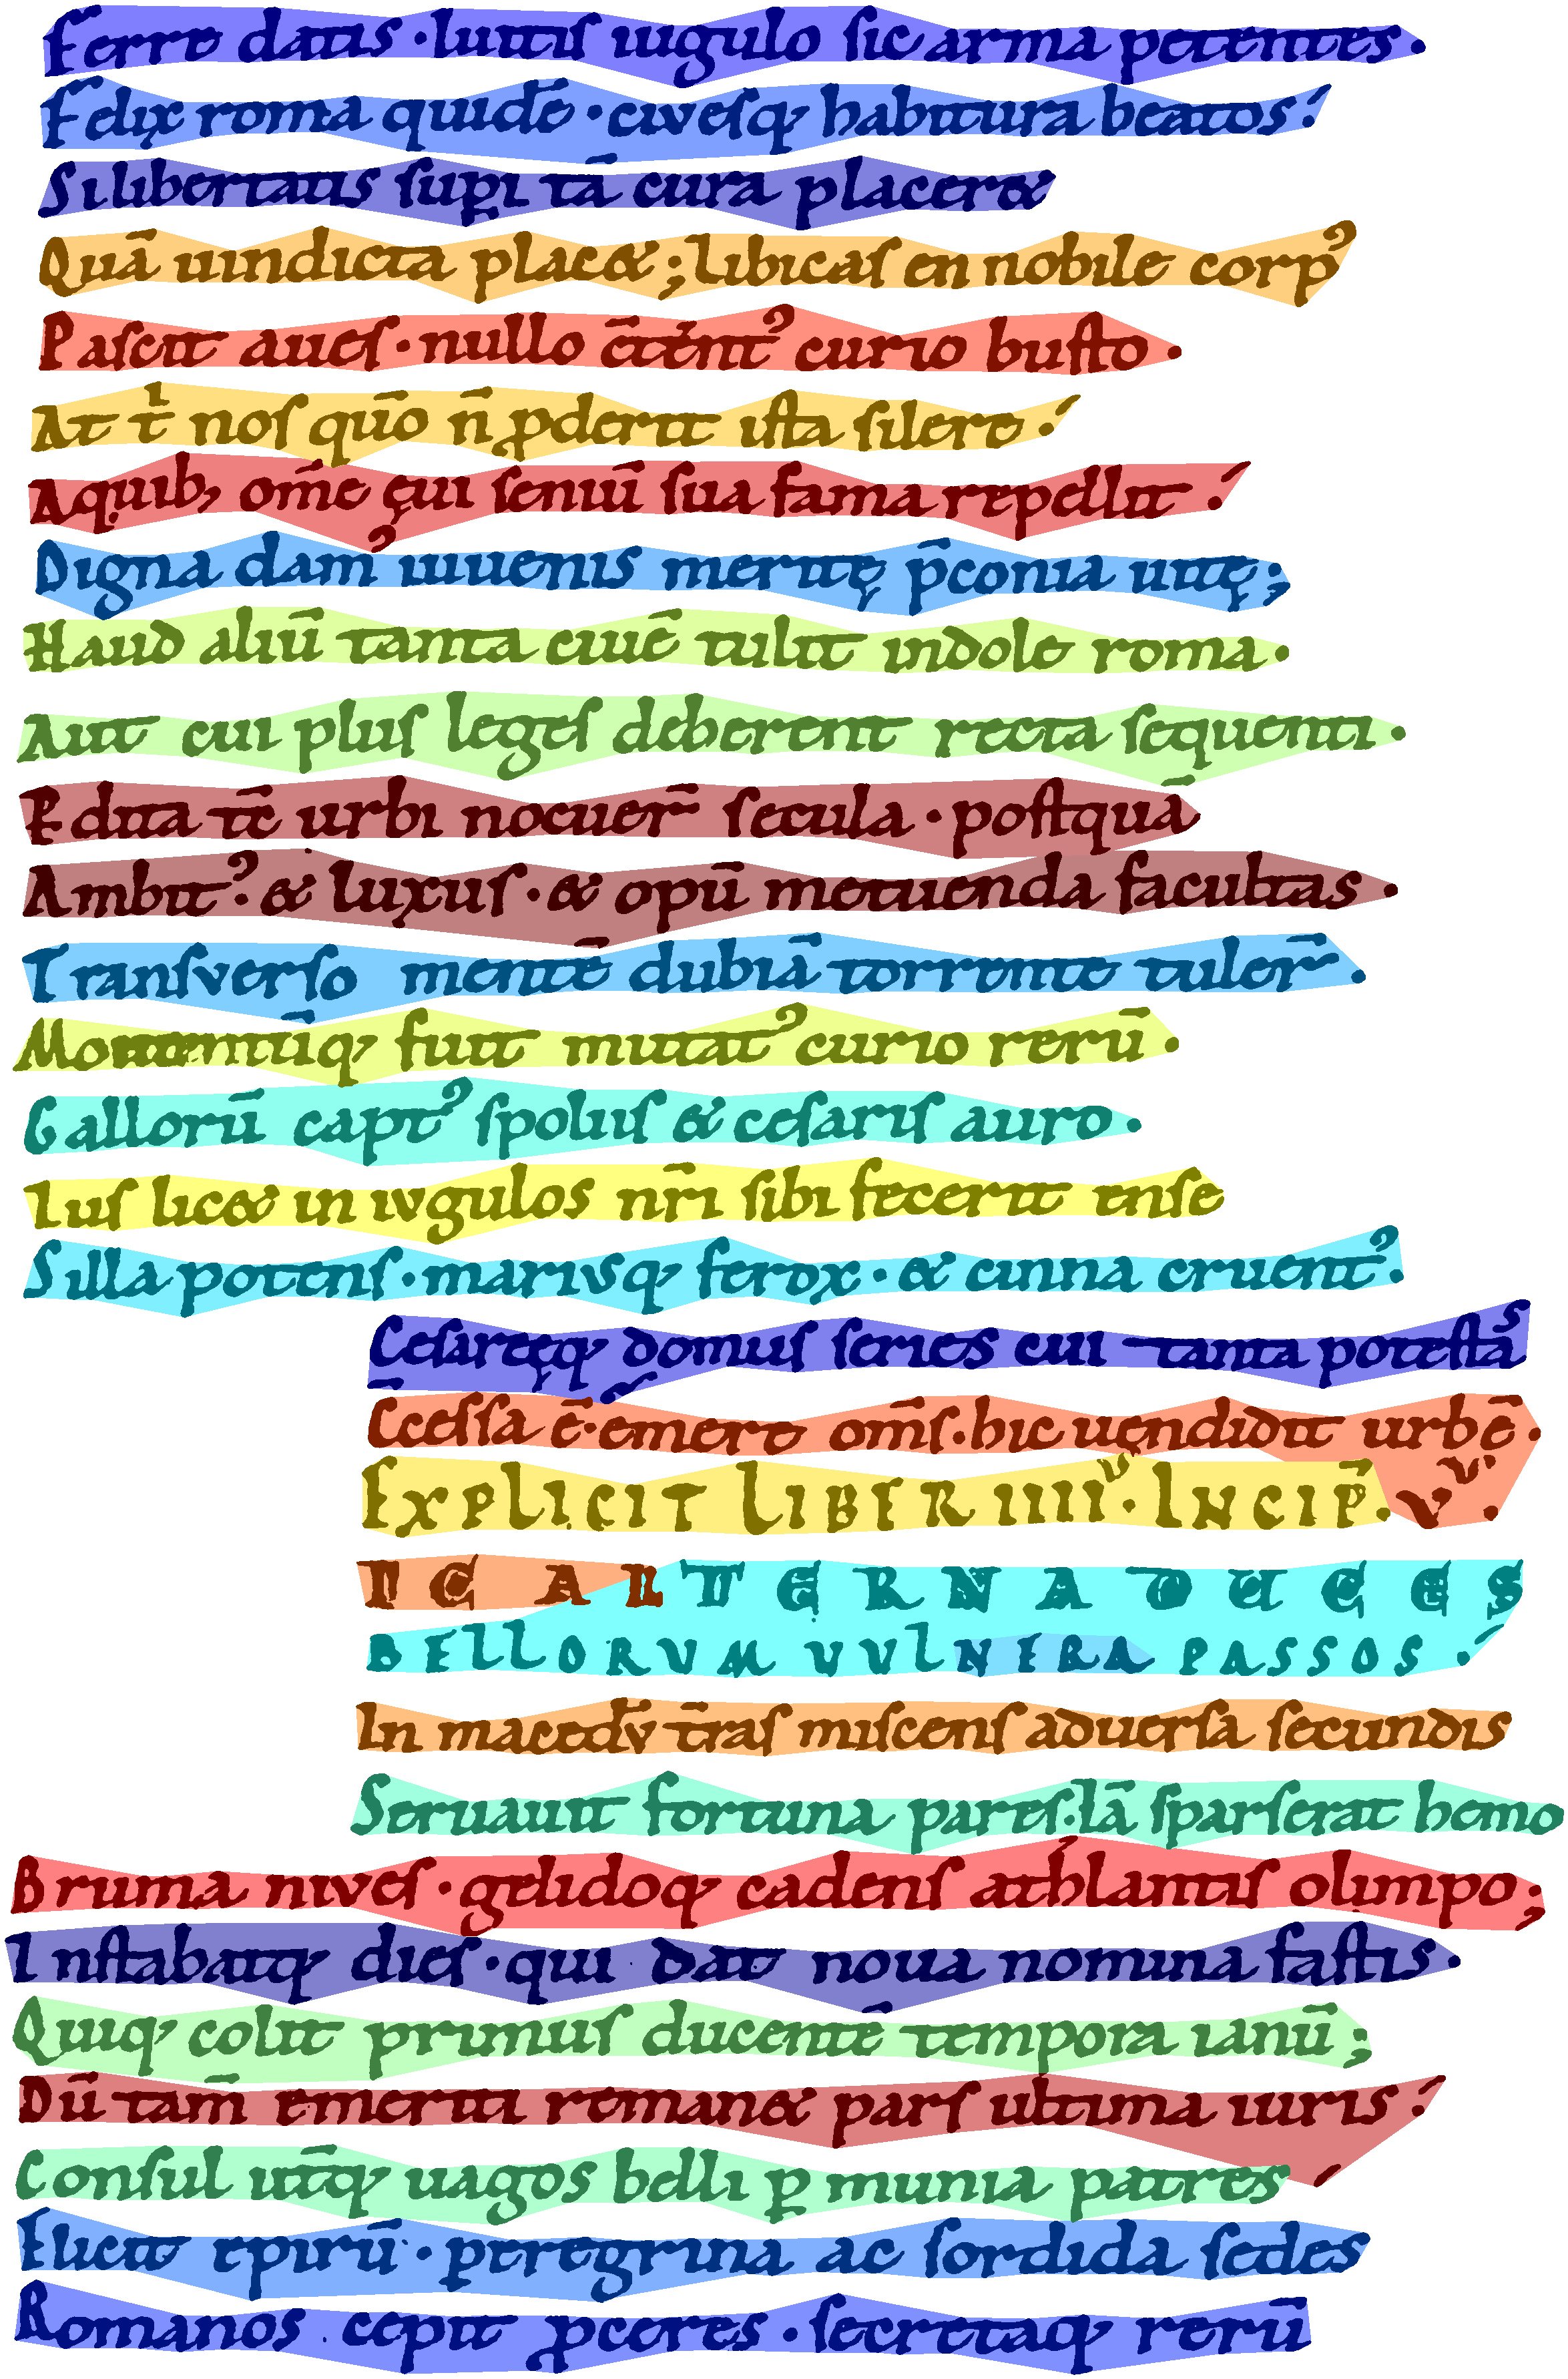 Ferre datis · luitis iugulo sic arma petentes .
Felix roma quidē · civesq; habitura beatos :
Si libertatis supi tā cura placer&
Quā uindicta plac& ; libicas en nobile corp᾿
Pascit aues · nullo c̄tent᾿ curio busto .
At t̄ nos quō n̄ pderit ista silere :
A quib; om̄e ęui seniū sua fama repellit :
Digna dam᾿ iuuenis meritę p̄conia uitę ;
Haud aliū tanta ciuē tulit indole roma .
Aut cui plus leges deberent recta sequenti .
Perdita tc̄ urbi nocuer̄ secula · postquā
Ambit᾿ & luxus · & opū metuenda facultas .
Transverso mentē dubiā torrente tuler̄ .
Momentūq; fuit mutat᾿ curio rerū .
Gallorū capt᾿ spoliis & cesaris auro .
Ius lic& in iugulos nr̄i sibi fecerit ense
Silla potens · mariusq; ferox · & cinna cruent᾿ .
Cesareęq; domus series cui tanta potestas
C̄cessa ē · emere om̄s . hic uendidit urbē .
EXPLICIT LIBER IIIIus . INCIP̄ . Vus .
SIC ALTERNA DUCES
BELLORVM VVLNERA PASSOS :
In macedū t̄ras miscens aduersa secundis
Seruauit fortuna pares . Iā sparserat hemo
Bruma nives · gelidoq; cadens athlantis olimpo ;
Instabatq; dies · qui dat noua nomina fastis .
Quiq; colit primus ducentē tempora ianū ;
Dū tam̄ emeriti roman& pars ultima iuris :
Consul ut̄q; uagos belli p munia patres
Elicit epirū · peregrina ac sordida sedes
Romanos cepit pceres · secretaq; rerū